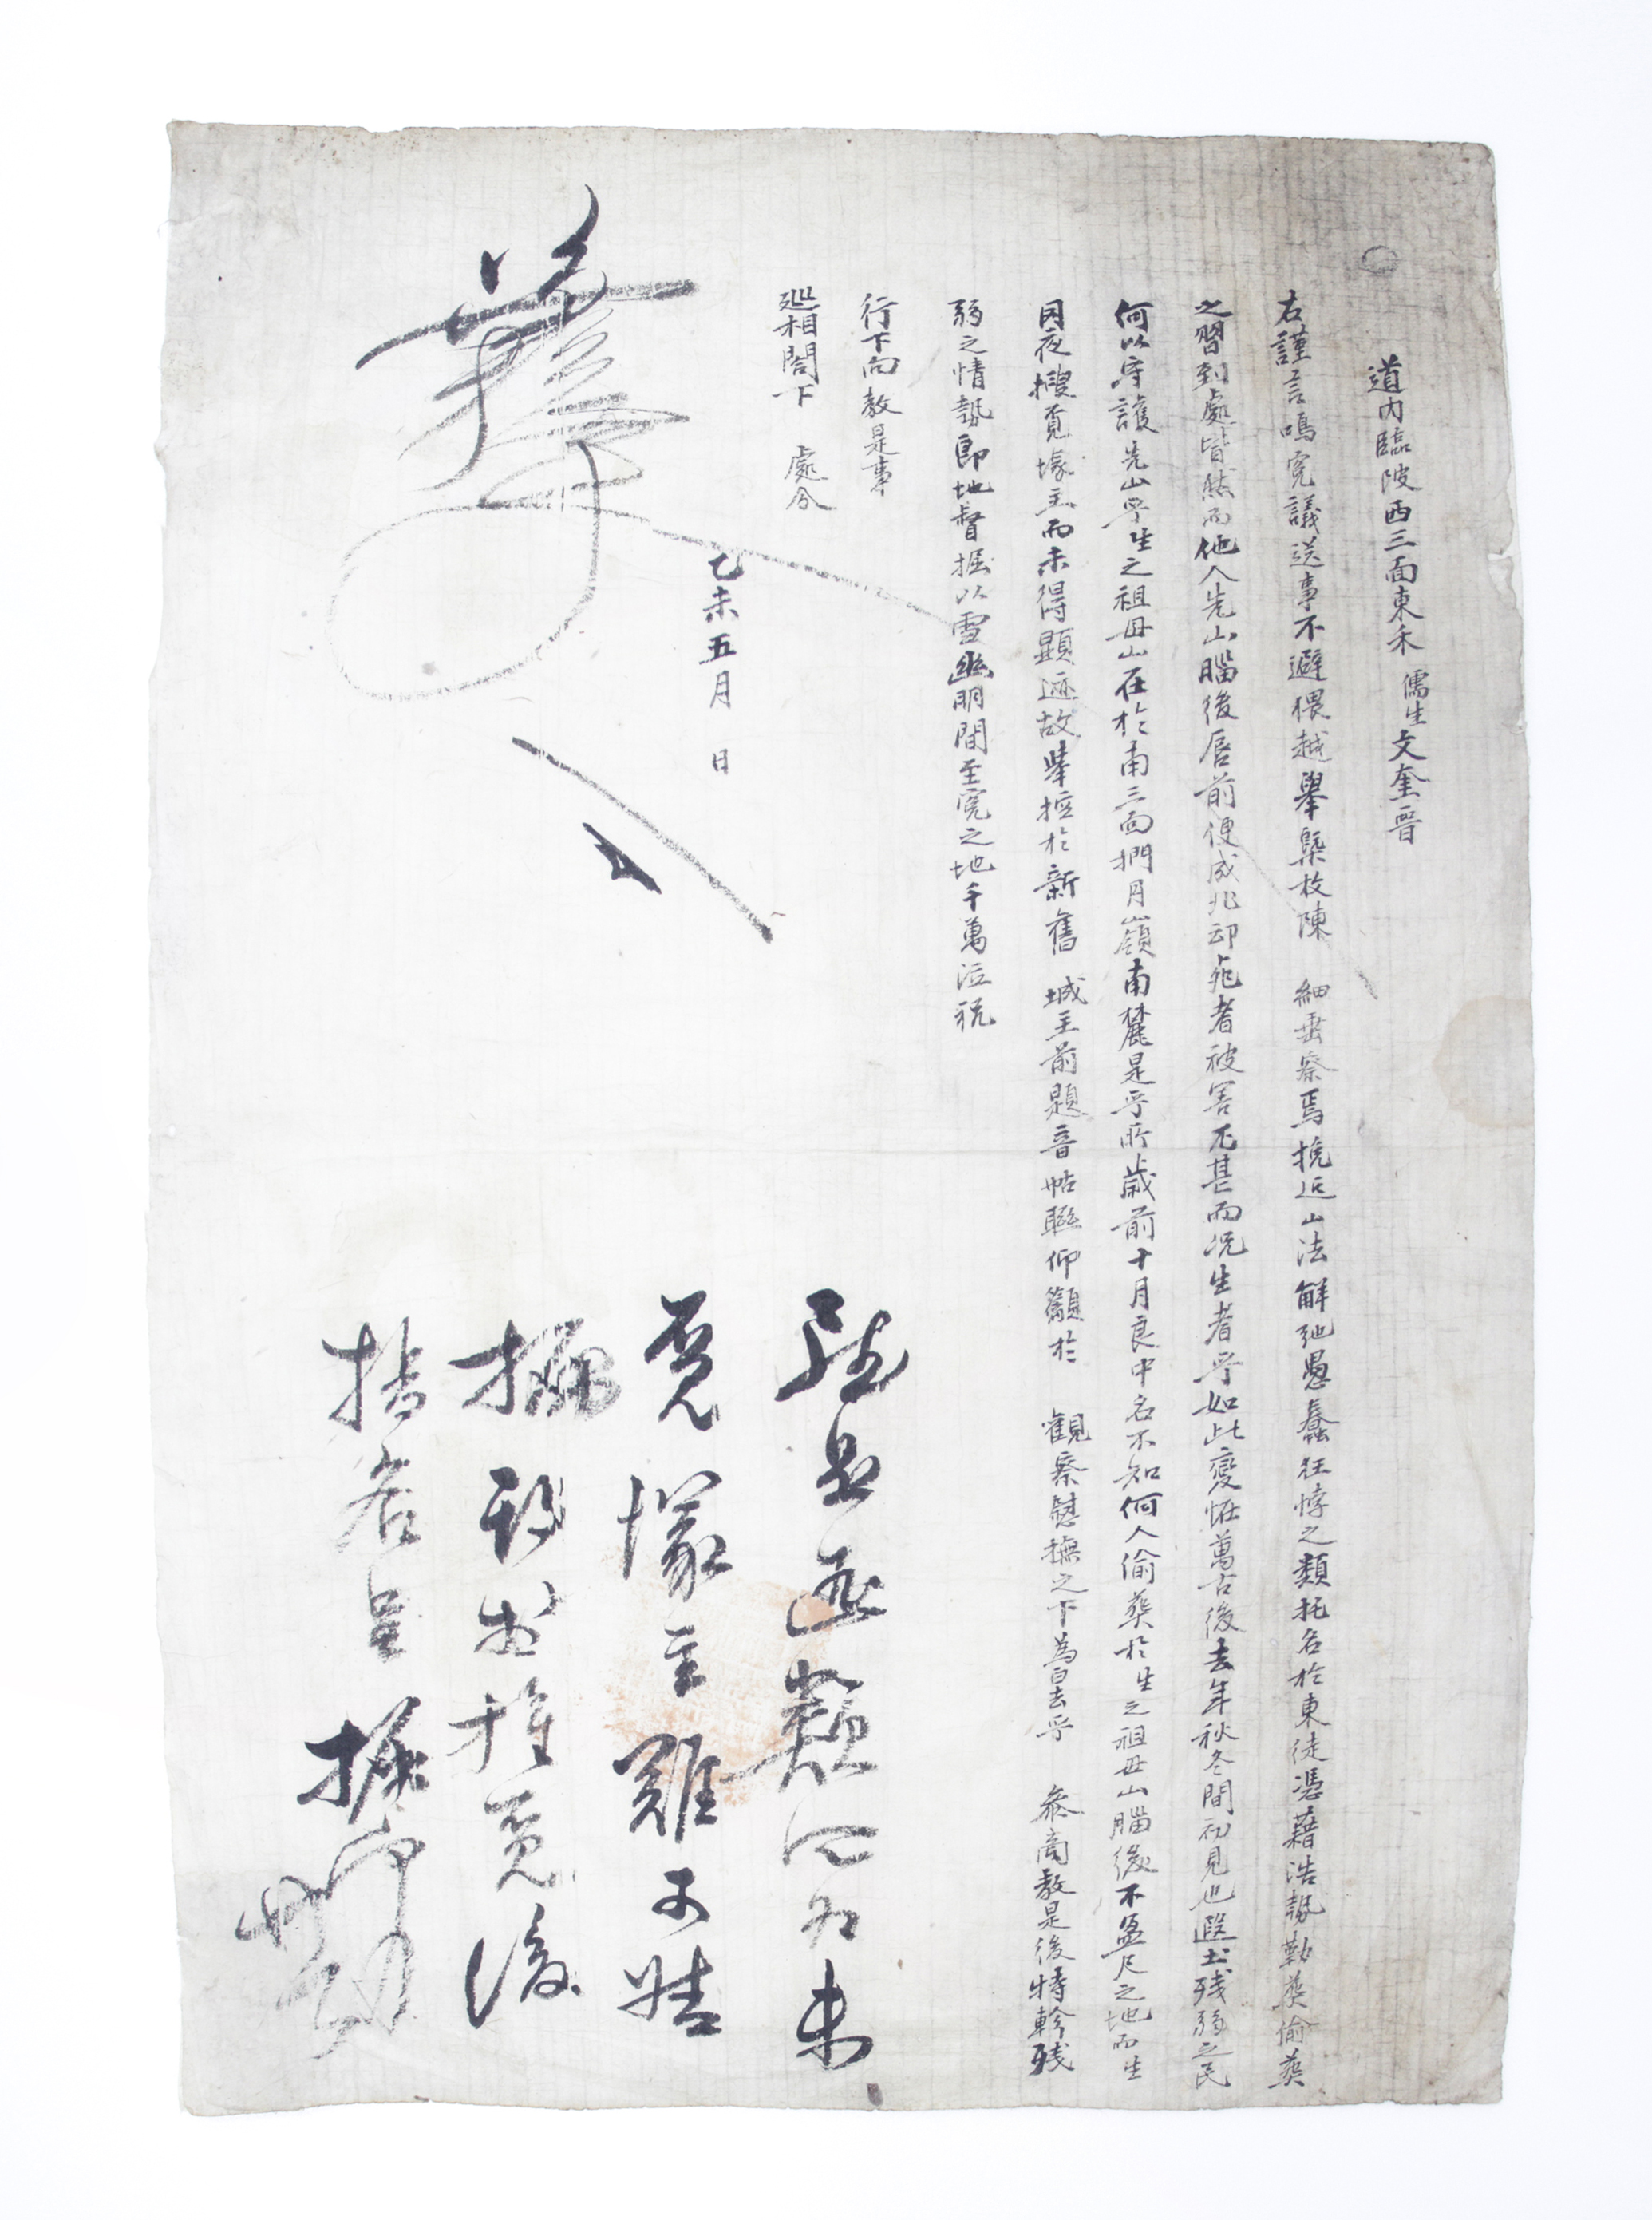 道內臨陂西三面東禾 儒生文奎晋
右謹言鳴寃議送事不避猥越擧槩枚陳 細垂察焉挽近山法解弛愚蠢狂悖之類托名於東徒憑藉浩勢勒葬偷葬
之習到處皆然而他人先山腦後唇前便成兆却死者被害尤甚而况生者乎如此變恠萬古後去年秋冬間初見也遐土残弱之民
何以守護先山乎生之祖母山在於南三面捫月嶺南麓是乎所歲前十月良中名不知何人偷葬於生之祖母山腦後不盈尺之地而生
因夜搜覓塚主而未得顯迹故擧控於新舊 城主前題音帖聯仰籲於 觀察慰撫之下爲白去乎 叅商敎是後特軫残
弱之情勢即地督掘以雪幽明間至寃之地千萬泣祝
行下向敎是事
巡相閤下 處分
乙未五月 日
未
覓塚主雖可
探覓後
指名呈